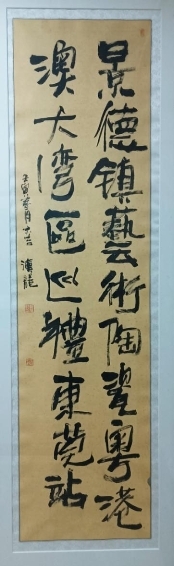 景德镇藝术陶瓷粤港
澳大湾區巡禮東莞站